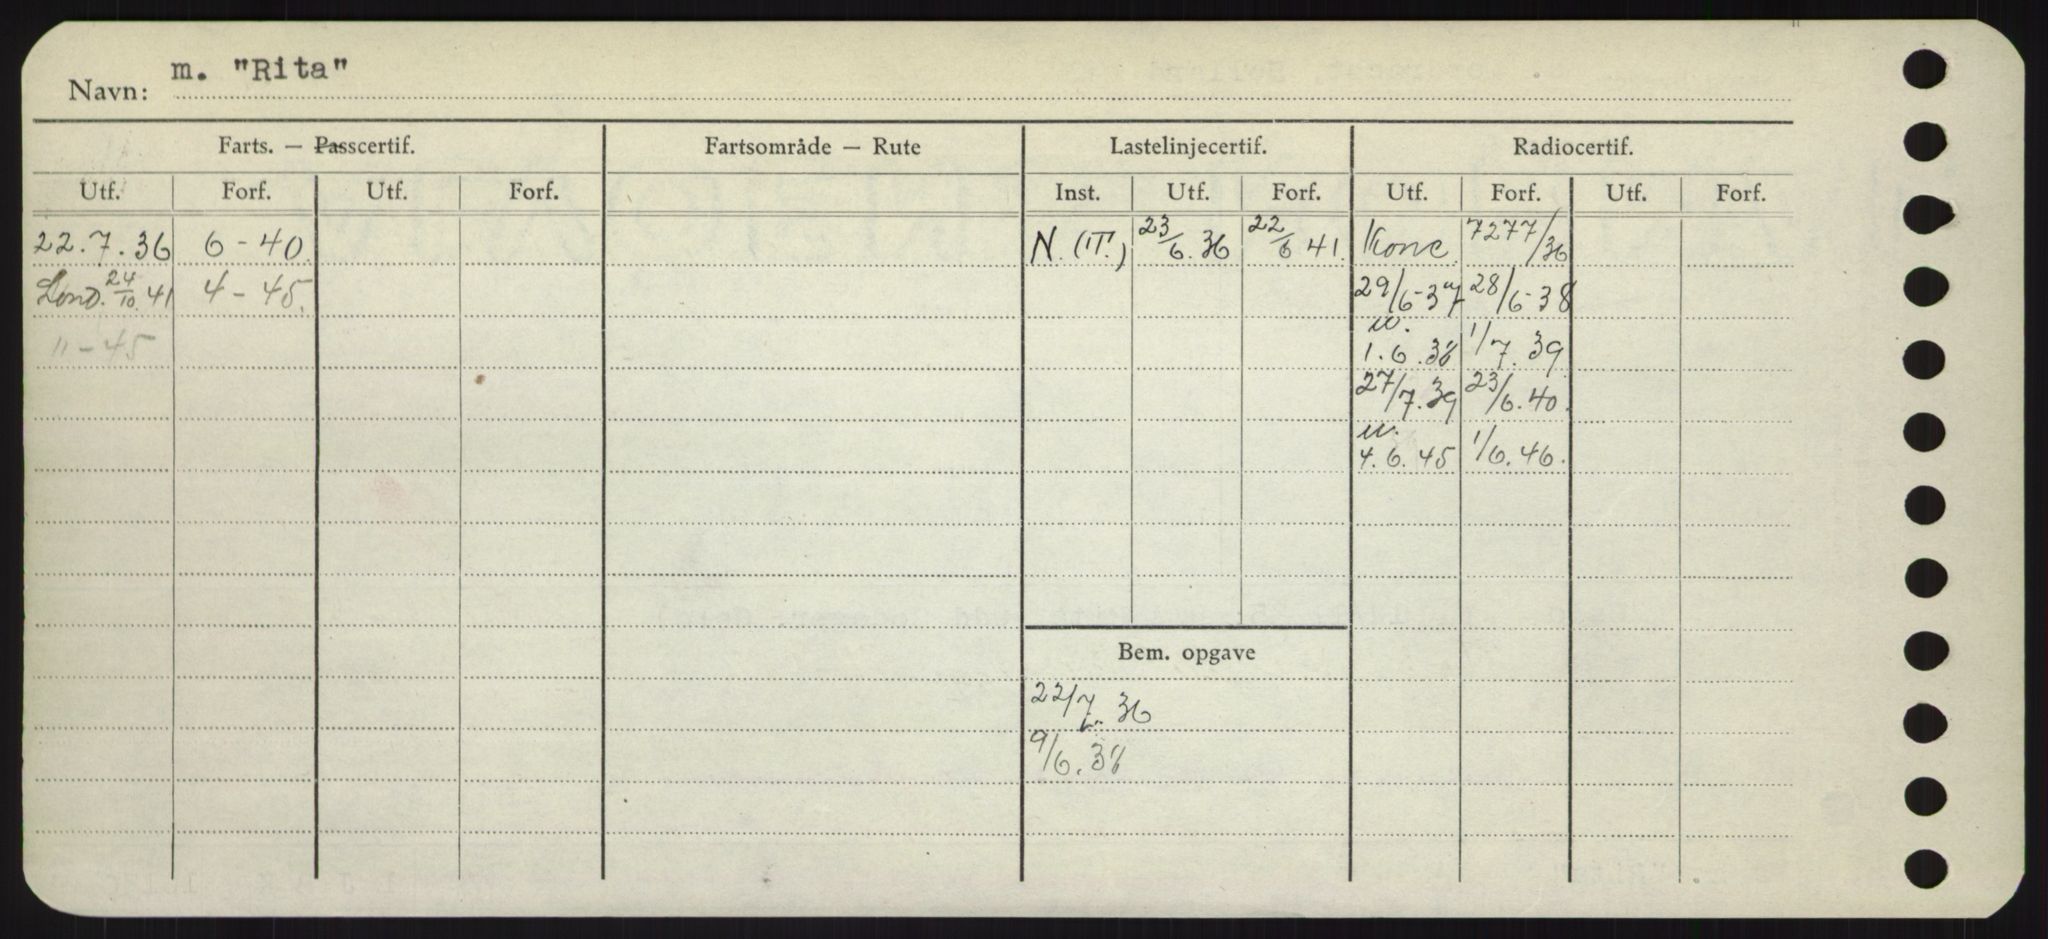 Navn: m. "Rita"
Farts. — Passcertif. Fartsområde — Rute Lastelinjecertif. Radiocertif.
Utf. Forf. Utf. Forf. Inst. Utf. Forf. Utf. Forf. Utf. Forf.
22.7.36 6-40 N. (IT.) 23/6.36 22/6 41. Konc. 7277/36
Lond. 24/10.41 4-45. 29/6-37 28/6-38
"-45 u. 1.6.38 1/7.39
27/7.39 23/6.40.
u. 4.6.45 1/6.46.
Bem. opgave
22/7.36
9/6.38